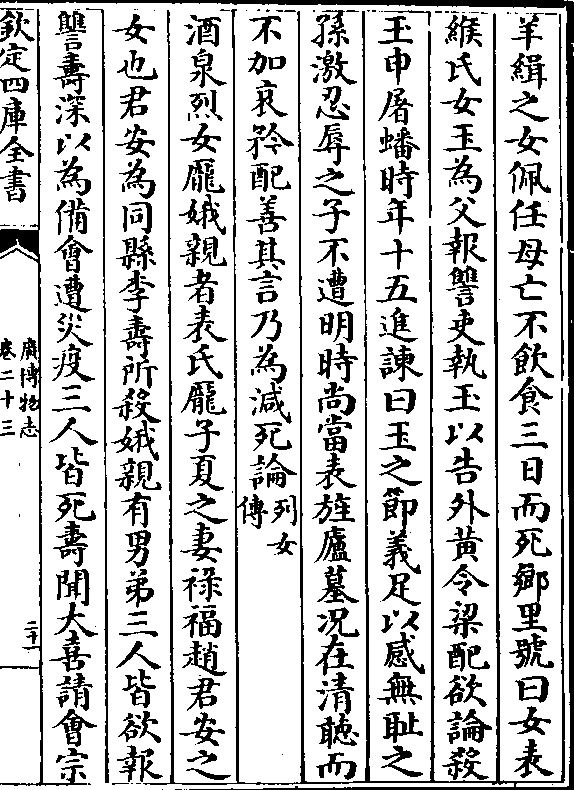 羊緝之女佩任母亡不飲食三日而死鄉里號曰女表
緱氏女玉為父報讐吏執玉以告外黃令梁配欲論殺
玉申屠蟠時年十五進諫曰玉之節義足以感無耻之
孫激忍辱之子不遭明時尚當表旌廬墓况在清聽而
不加哀矜配善其言乃為減死論列女傳
酒泉烈女龎娥親者表氏龎子夏之妻祿福趙君安之
女也君安為同縣李壽所殺娥親有男弟三人皆欲報
讐壽深以為備會遭災疫三人皆死壽聞大喜請會宗
欽定四庫全書
廣博物志
卷二十三
二十一